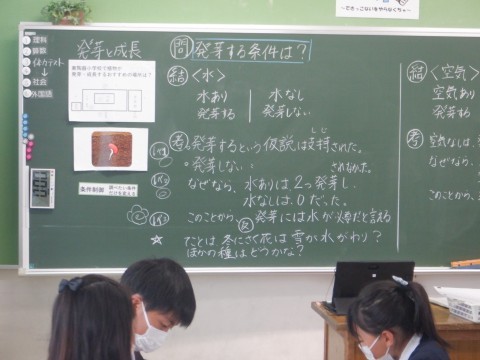 ~さっこないをやらなくちゃ~
理科
算数
社会
外国語
発芽と成長
条件制御
調べたい条件
だけを変える
問 発芽する条件は？
結 〈水〉
水あり 水なし
発芽する 発芽しない
考 発芽するという仮説は支持された。
しじ
。発芽しない 〃 されなかった。
なぜなら、水ありは2つ発芽し、
水なしは、0だった。
このことから、発芽には水が必要だと言える
☆ たとば 冬にさく花は雪が水がわり？
ほかの種はどうかな？
結 〈空気〉
空気あり
発芽する
考 空気なしは、
なぜなら、
このことから、